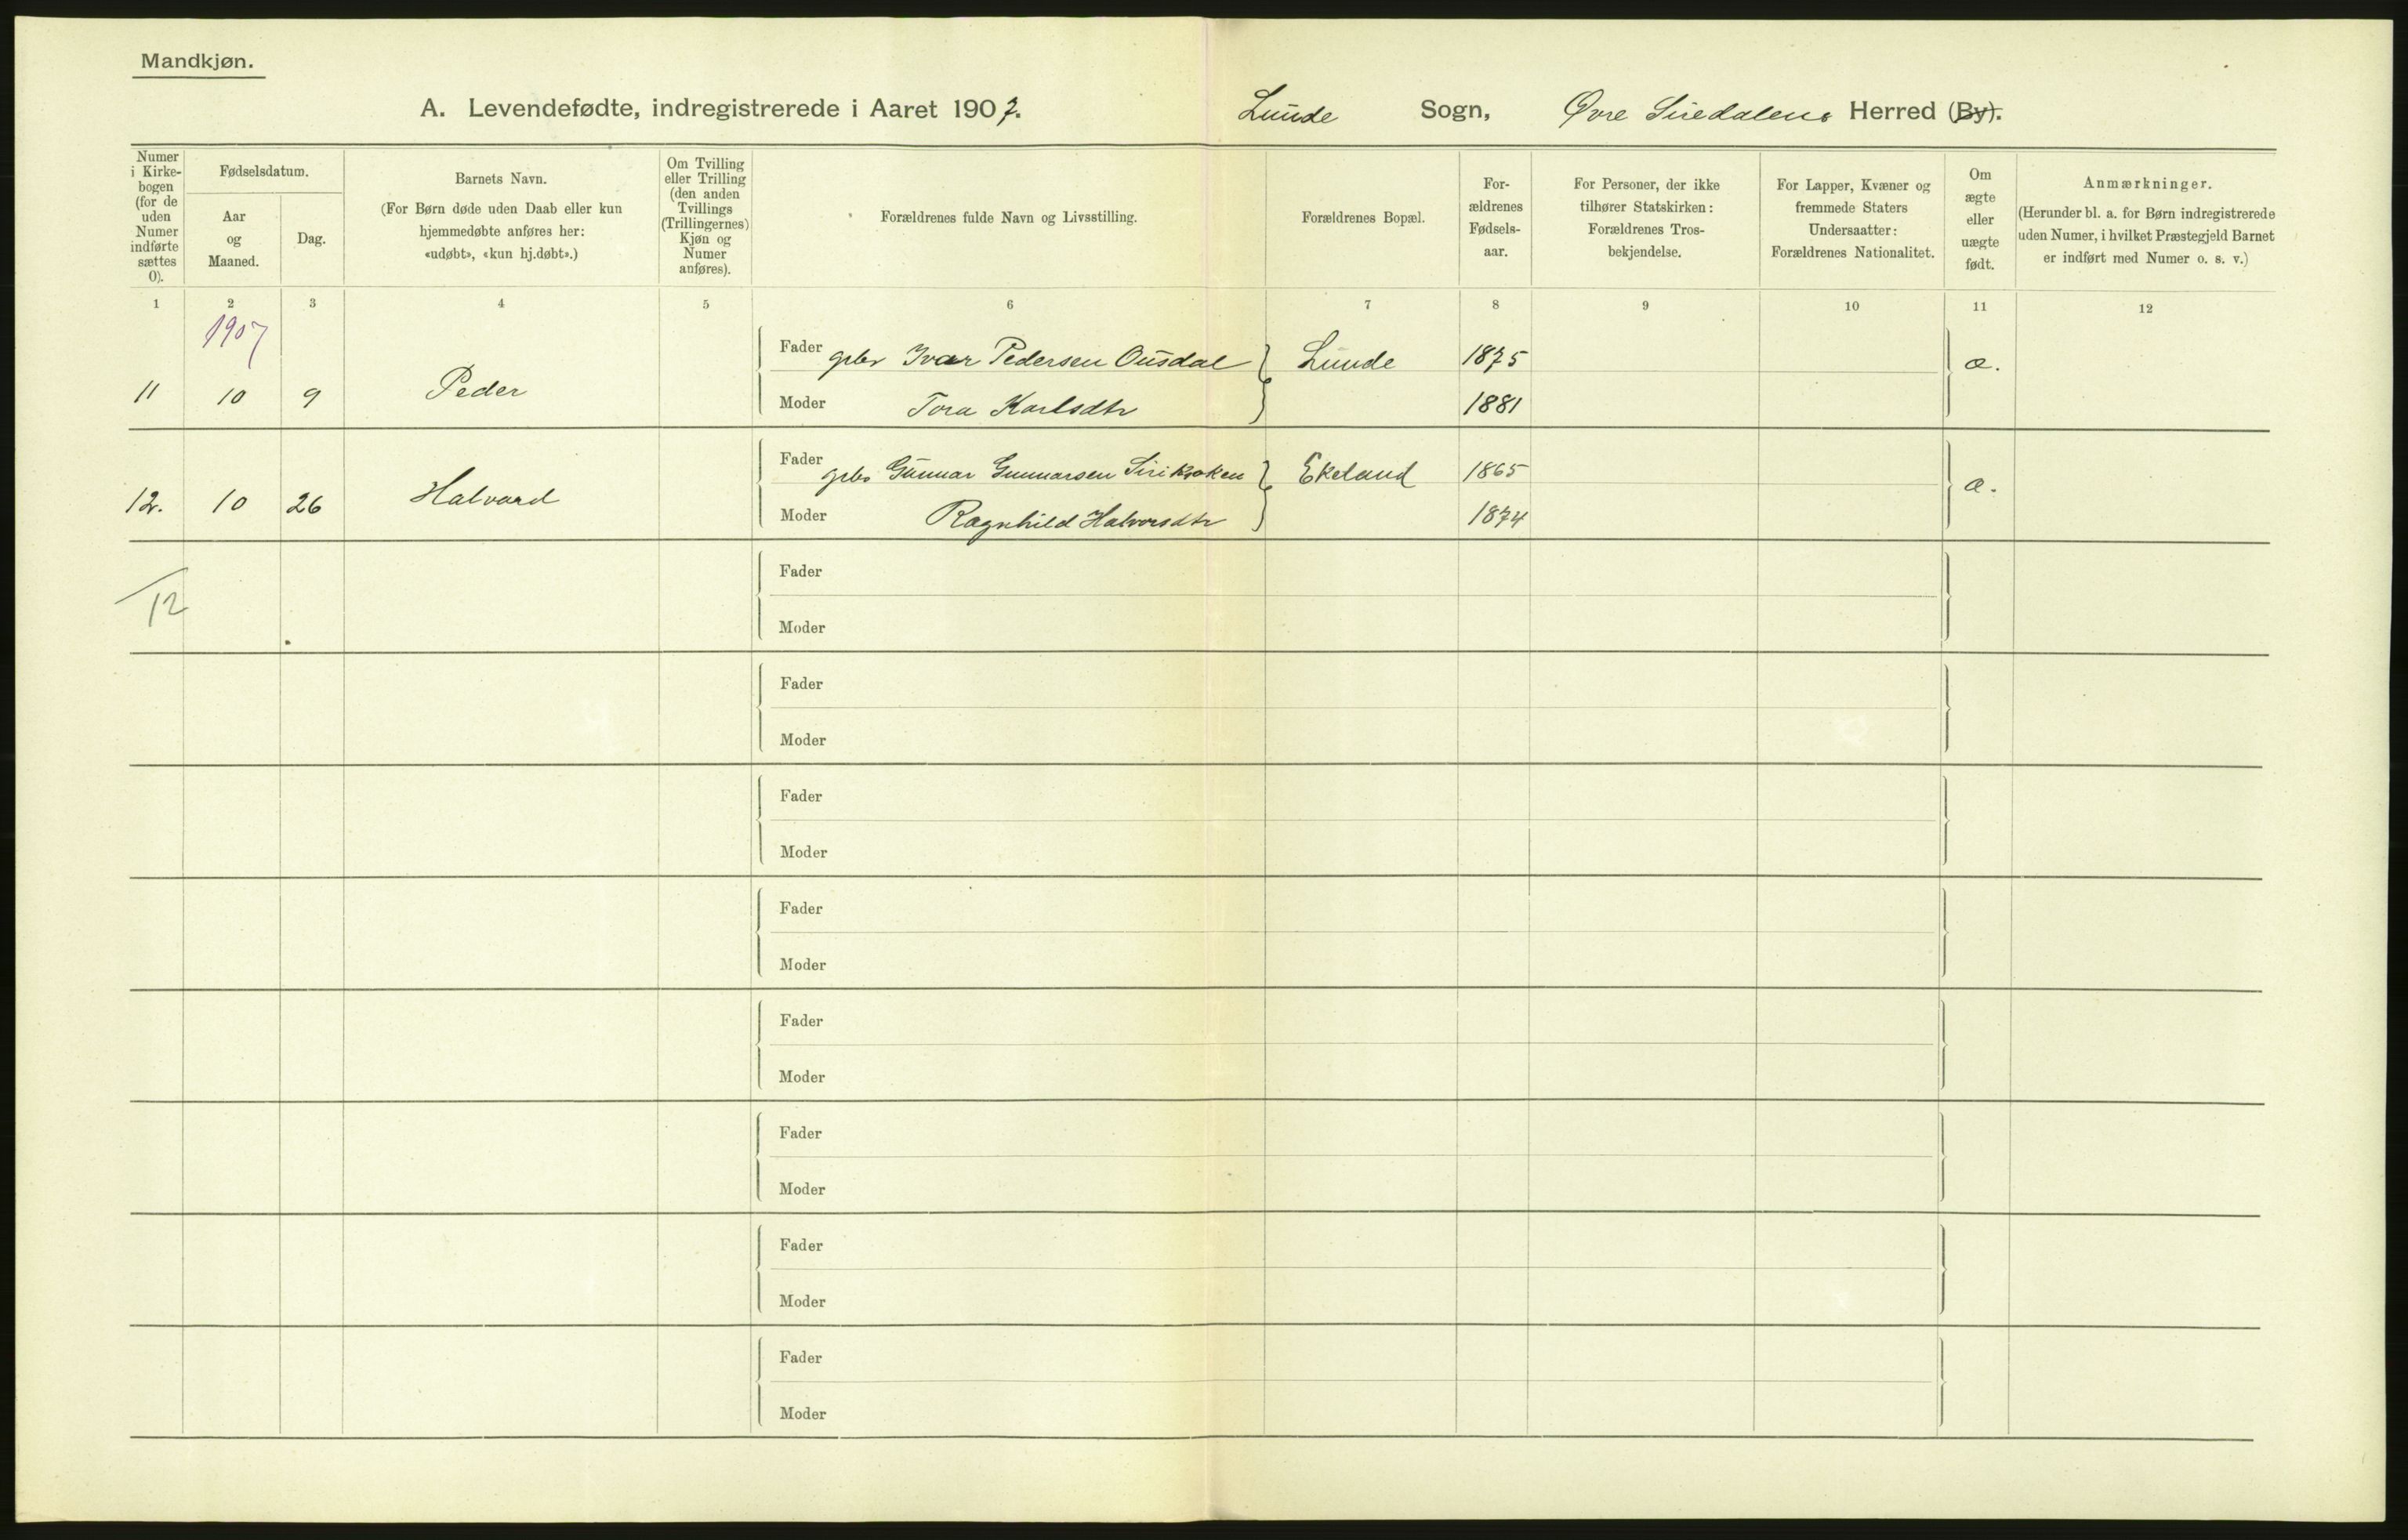 Mandkjøn.
A. Levendefødte, indregistrerede i Aaret 1907. Lunde Sogn, Øvre Siredalens Herred (By).
Numer i Kirke-bogen (for de uden Numer indførte sættes 0).
Fødselsdatum.
Aar og Maaned.
Dag.
Barnets Navn.
(For Børn døde uden Daab eller kun
hjemmedøbte anføres her:
«udøbt», «kun hj.døbt».)
Om Tvilling
eller Trilling
(den anden
Tvillings
(Trillingernes)
Kjøn og
Numer
anføres).
Forældrenes fulde Navn og Livsstilling.
Forældrenes Bopæl.
For-
ældrenes
Fødsels-
aar.
For Personer, der ikke
tilhører Statskirken:
Forældrenes Tros-
bekjendelse.
For Lapper, Kvæner og
fremmede Staters
Undersaatter:
Forældrenes Nationalitet.
Om
ægte
eller
uægte
født.
Anmærkninger.
(Herunder bl. a. for Børn indregistrerede
uden Numer, i hvilket Præstegjeld Barnet
er indført med Numer o. s. v.)
1 2 3 4 5 6 7 8 9 10 11 12
1907
Fader gbr Ivar Pedersen Ousdal Lunde 1875 æ.
11 10 9 Peder
Moder Tora Karlsdtr 1881
Fader gbr Gunnar Gunnarsen Sirikroken Ekeland 1865 æ.
12. 10 26 Halvard
Moder Ragnhild Halvorsdtr 1874
Fader
12
Moder
Fader
Moder
Fader
Moder
Fader
Moder
Fader
Moder
Fader
Moder
Fader
Moder
Fader
Moder